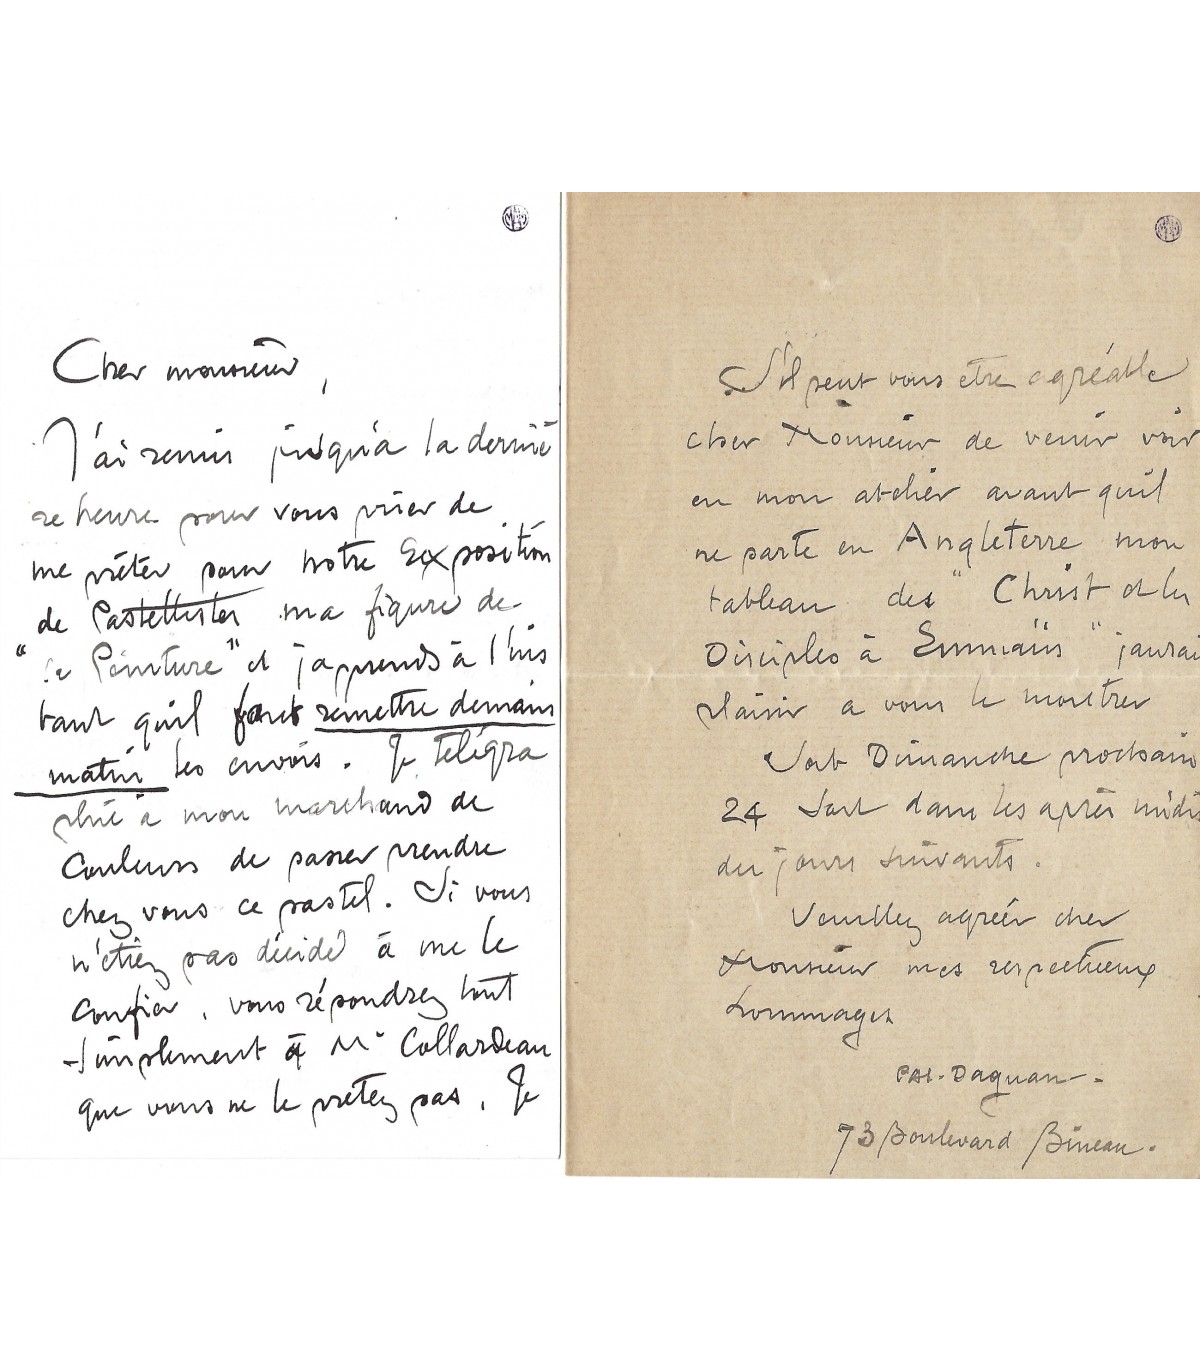 Cher monsieur,
J'ai remis jusqu'à la derniè
re heure pour vous prier de
me prêter pour notre Exposition
de Pastellistes ma figure de
"la Peinture" et j'apprends à l'ins
tant qu'il faut remettre demain
matin les envois. Je télégra
phie à mon marchand de
couleurs de passer prendre
chez vous ce pastel. Si vous
n'étiez pas décidé à me le
confier, vous répondrez tout
simplement à Mr Collardeau
que vous ne le prêtez pas. Je
S'il peut vous etre agréable
cher Monsieur de venir voir
en mon atelier avant quil
ne parte en Angleterre mon
tableau des "Christ et les
Disciples à Emmaüs" jaurai
plaisir a vous le montrer
Soit Dimanche prochain
24 Soit dans les après midis
des jours suivants.
Veuillez agréer cher
Monsieur mes respectueux
hommages
PAJ-Dagnan-.
73 Boulevard Bineau.